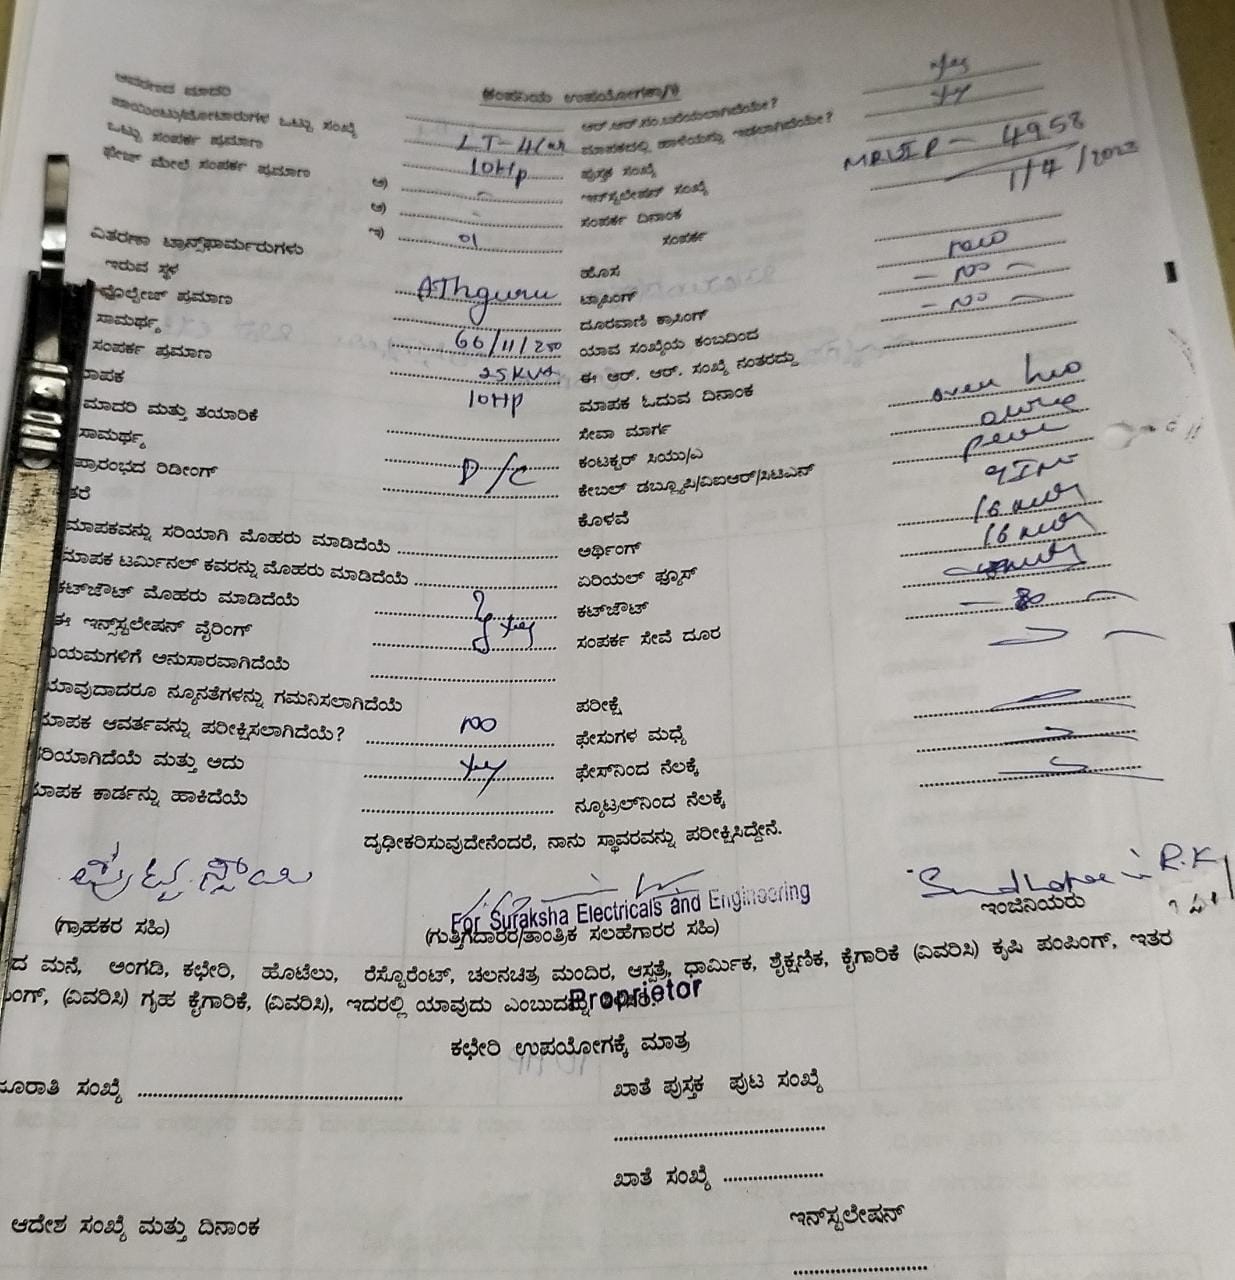 (ಕಂಪನಿಯ ಉಪಯೋಗಕ್ಕಾಗಿ)
ಆವರಣದ ಮಾದರಿ ಆರ್.ಆರ್.ನಂ.ಬರೆಯಲಾಗಿದೆಯೇ? Yes
ಪಾಯಿಂಟು/ಮೋಟಾರುಗಳ ಒಟ್ಟು ಸಂಖ್ಯೆ ಮಾಪಕದಲ್ಲಿ ಹಾಳೆಯನ್ನು ಇಡಲಾಗಿದೆಯೇ?
ಒಟ್ಟು ಸಂಪರ್ಕ ಪ್ರಮಾಣ 10Hp ಪುಸ್ತಕ ಸಂಖ್ಯೆ
ಫೇಜ್ ಮೇಲೆ ಸಂಪರ್ಕ ಪ್ರಮಾಣ ಅ) ಇನ್‌ಸ್ಟಲೇಷನ್ ಸಂಖ್ಯೆ 4958
ಆ) ಸಂಪರ್ಕ ದಿನಾಂಕ 1/4/2023
ಇ) 01 ಸಂಪರ್ಕ
ವಿತರಣಾ ಟ್ರಾನ್ಸ್‌ಫಾರ್ಮರುಗಳು
ಇರುವ ಸ್ಥಳ Athguru ಹೊಸ new
ವೊಲ್ಟೇಜ್ ಪ್ರಮಾಣ ಟ್ಯಾಪಿಂಗ್ - no -
ಸಾಮರ್ಥ್ಯ 66/11/250 ದೂರವಾಣಿ ಕ್ರಾಸಿಂಗ್ - no -
ಸಂಪರ್ಕ ಪ್ರಮಾಣ 25KVA ಯಾವ ಸಂಖ್ಯೆಯ ಕಂಬದಿಂದ
ಮಾಪಕ 10Hp ಈ ಆರ್. ಆರ್. ಸಂಖ್ಯೆ ನಂತರದ್ದು
ಮಾದರಿ ಮತ್ತು ತಯಾರಿಕೆ ಮಾಪಕ ಓದುವ ದಿನಾಂಕ
ಸಾಮರ್ಥ್ಯ D/C ಸೇವಾ ಮಾರ್ಗ
ಪ್ರಾರಂಭದ ರಿಡೀಂಗ್ ಕಂಟಕ್ಟರ್ ಸಿಯು/ಎ
ತರೆ ಕೇಬಲ್ ಡಬ್ಲ್ಯೂಪಿ/ವಿಐಆರ್/ಸಿಟಿಎಸ್
ಮಾಪಕವನ್ನು ಸರಿಯಾಗಿ ಮೊಹರು ಮಾಡಿದೆಯೆ ಕೊಳವೆ
ಮಾಪಕ ಟರ್ಮಿನಲ್ ಕವರನ್ನು ಮೊಹರು ಮಾಡಿದೆಯೆ ಅರ್ಥಿಂಗ್
ಕಟ್‌ಔಟ್ ಮೊಹರು ಮಾಡಿದೆಯೆ ಏರಿಯಲ್ ಫ್ಯೂಸ್
ಈ ಇನ್ಸ್‌ಸ್ಟಲೇಷನ್ ವೈರಿಂಗ್ yes ಕಟ್‌ಔಟ್
ನಿಯಮಗಳಿಗೆ ಅನುಸಾರವಾಗಿದೆಯೆ ಸಂಪರ್ಕ ಸೇವೆ ದೂರ
ಯಾವುದಾದರೂ ನ್ಯೂನತೆಗಳನ್ನು ಗಮನಿಸಲಾಗಿದೆಯೆ
ಮಾಪಕ ಆವರ್ತವನ್ನು ಪರೀಕ್ಷಿಸಲಾಗಿದೆಯೆ? no ಪರೀಕ್ಷೆ
ಸರಿಯಾಗಿದೆಯೆ ಮತ್ತು ಅದು yes ಫೇಸುಗಳ ಮಧ್ಯೆ
ಮಾಪಕ ಕಾರ್ಡನ್ನು ಹಾಕಿದೆಯೆ ಫೇಸ್‌ನಿಂದ ನೆಲಕ್ಕೆ
ನ್ಯೂಟ್ರಲ್‌ನಿಂದ ನೆಲಕ್ಕೆ
ದೃಢೀಕರಿಸುವುದೇನೆಂದರೆ, ನಾನು ಸ್ಥಾವರವನ್ನು ಪರೀಕ್ಷಿಸಿದ್ದೇನೆ.
For Suraksha Electricals and Engineering
(ಗ್ರಾಹಕರ ಸಹಿ) (ಗುತ್ತಿಗೆದಾರರ/ತಾಂತ್ರಿಕ ಸಲಹೆಗಾರರ ಸಹಿ) ಇಂಜಿನಿಯರು
ದ ಮನೆ, ಅಂಗಡಿ, ಕಛೇರಿ, ಹೊಟೆಲು, ರೆಸ್ಟೊರೆಂಟ್, ಚಲನಚಿತ್ರ ಮಂದಿರ, ಆಸ್ಪತ್ರೆ, ಧಾರ್ಮಿಕ, ಶೈಕ್ಷಣಿಕ, ಕೈಗಾರಿಕೆ (ವಿವರಿಸಿ) ಕೃಷಿ ಪಂಪಿಂಗ್, ಇತರ
ಂಗ್, (ವಿವರಿಸಿ) ಗೃಹ ಕೈಗಾರಿಕೆ, (ವಿವರಿಸಿ), ಇದರಲ್ಲಿ ಯಾವುದು ಎಂಬುದನ್ನು
Proprietor
ಕಛೇರಿ ಉಪಯೋಗಕ್ಕೆ ಮಾತ್ರ
ಸಂಖ್ಯೆ ಖಾತೆ ಪುಸ್ತಕ ಪುಟ ಸಂಖ್ಯೆ
ಖಾತೆ ಸಂಖ್ಯೆ
ಆದೇಶ ಸಂಖ್ಯೆ ಮತ್ತು ದಿನಾಂಕ ಇನ್‌ಸ್ಟಲೇಷನ್